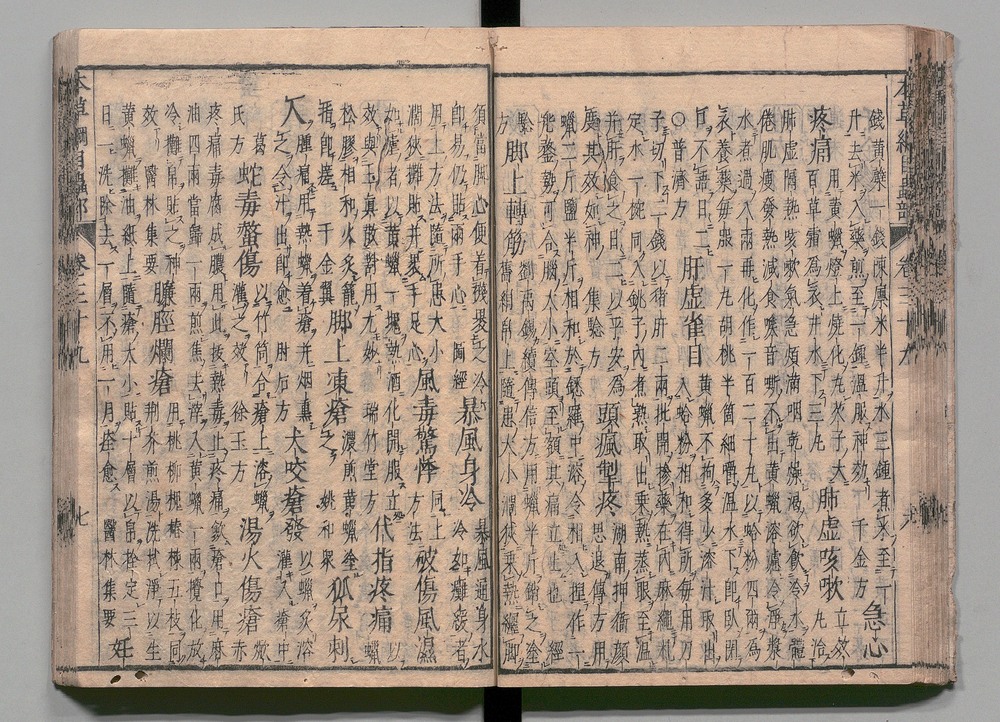 錢黃蠟一錢陳粟米半升水三鍾煮米至一 急心
疼痛 用黃蠟燈上燒化丸芡子大 肺虛咳嗽 立效丸治
肺虛膈熱咳嗽氣急煩滿咽乾燥渴欲飲冷水體
倦肌瘦發熱減食喉音嘶不出黃蠟溶濾令淨漿
水煮過八兩再化作一百二十丸以蛤粉四兩爲
衣養藥每服一丸胡桃半箇細嚼溫水下即臥閉
口不語日二 肝虛雀目 黃蠟不拘多少溶汁取出
入蛤粉相和得所每用刀
子切下二錢以猪肝二兩批開摻藥在內麻繩札
定水一椀同入銚子內煮熟取出乘熱蒸眼至溫
并肝食之日二以平安爲
度其效如神 集驗方 頭風掣疼 湖南押衙顏
思退傳方用
蠟二斤鹽半斤相和於鑞羅中溶令相入捏作一
兜鍪勢可合腦大小至額其痛立止也 經
驗方 脚上轉筋 劉禹錫續傳信方用蠟半斤銷之塗
舊絹帛上隨患大小闊狹乘熱纏脚
須當脚心便着襪裹之冷
即易仍貼兩手心 圖經 暴風身冷 暴風通身水
冷如癱緩者
用上方法隨所患大小
闊狹攤貼并裹手足心 風毒驚悸 同上方法 破傷風濕
如瘧者以黃蠟一塊熱酒化開服立
效與玉真散對用尤妙 瑞竹堂方 代指疼痛 以蠟
松膠相和火炙籠
指即瘥 千金翼 脚上凍瘡 濃煎黃蠟塗之 姚和衆 狐尿刺
人 腫痛用熱蠟着瘡并烟熏
之令汁出即愈 肘后方 犬咬瘡發 以蠟炙溶
灌入瘡中
葛氏方 蛇毒螫傷 以竹筒合瘡上溶蠟
灌之效 徐玉方 湯火傷瘡 焮赤
疼痛毒腐成膿用此拔熱毒止疼痛斂瘡口用麻
油四兩當歸一兩煎焦去滓入黃蠟一兩攪化放
冷攤帛貼之神
效 醫林集要 臁脛爛瘡 用桃柳槐椿楝五枝同
荆芥煎湯洗拭淨以生
黃蠟攤油紙上隨瘡大小貼十層以帛拴定三
日一洗除去一層不用一月痊愈 醫林集要 妊